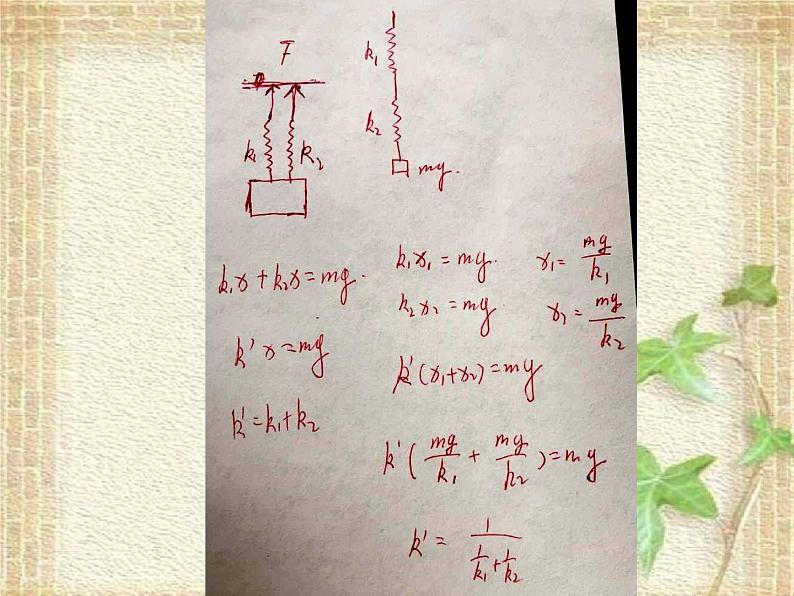 F
k₁ k₂
k₁x + k₂x = mg.
k' x = mg
k' = k₁ + k₂
k₁
k₂
mg.
k₁x₁ = mg. x₁ = mg/k₁
k₂x₂ = mg. x₂ = mg/k₂
k'(x₁+x₂) = mg
k'(mg/k₁ + mg/k₂) = mg
k' = 1/(1/k₁ + 1/k₂)